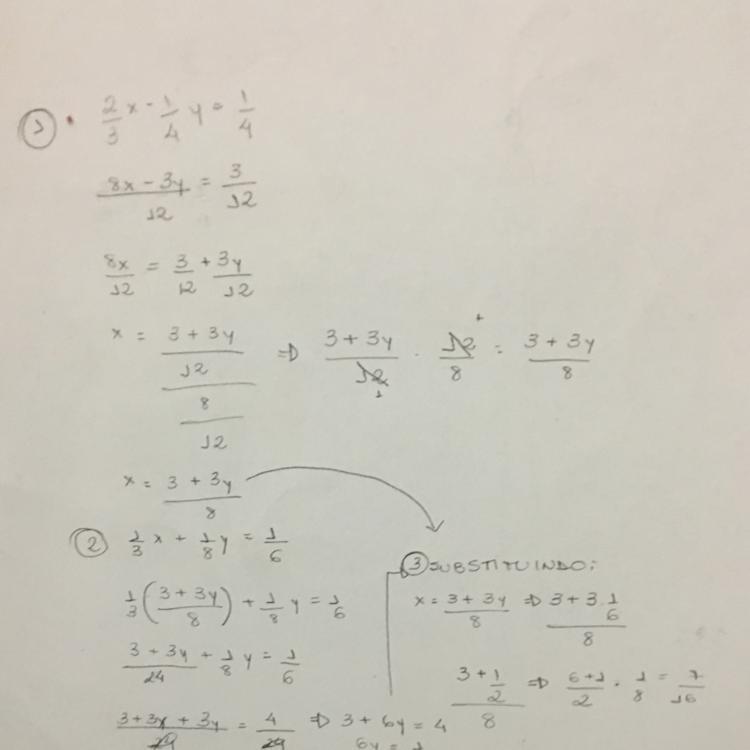 1) • 2/3 x - 1/4 y = 1/4
(8x - 3y)/12 = 3/12
8x/12 = 3/12 + 3y/12
x = ((3 + 3y)/12)/(8/12) ⇒ (3 + 3y)/12 · 12/8 = (3 + 3y)/8
x = (3 + 3y)/8
2) 1/3 x + 1/8 y = 1/6
1/3 ((3 + 3y)/8) + 1/8 y = 1/6
(3 + 3y)/24 + 1/8 y = 1/6
(3 + 3y + 3y)/24 = 4/24 ⇒ 3 + 6y = 4
6y = 1
3) SUBSTITUINDO:
x = (3 + 3y)/8 ⇒ (3 + 3 · 1/6)/8
(3 + 1/2)/8 ⇒ (6 + 1)/2 · 1/8 = 7/16